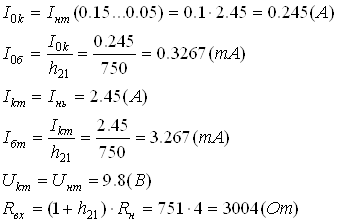 I₀ₖ = Iнт (0.15...0.05) = 0.1 · 2.45 = 0.245(A)
I₀б = I₀ₖ / h₂₁ = 0.245 / 750 = 0.3267(mA)
Iₖₘ = Iнь = 2.45(A)
Iбт = Iₖₘ / h₂₁ = 2.45 / 750 = 3.267(mA)
Uₖₘ = Uнт = 9.8(B)
Rвх = (1 + h₂₁) · Rн = 751 · 4 = 3004(Om)